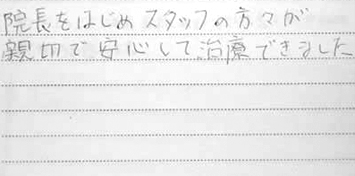 院長をはじめスタッフの方々が
親切で安心して治療できました